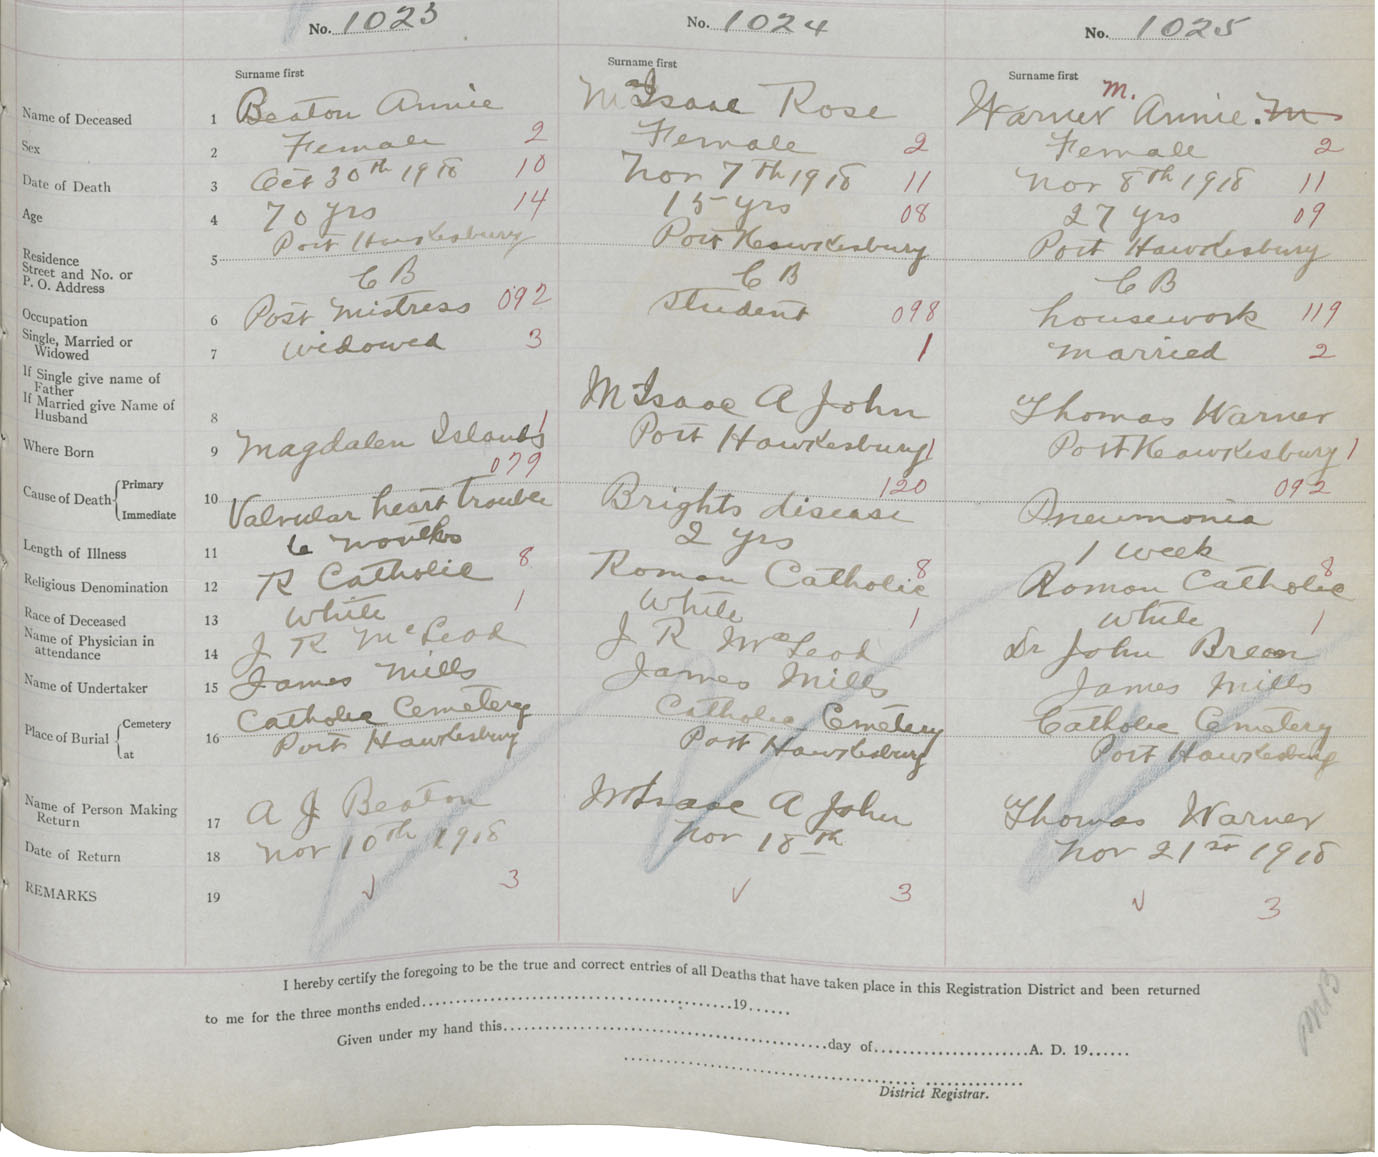 No. 1023 No. 1024 No. 1025
Surname first Surname first Surname first
Name of Deceased 1 Beaton Annie McIsaac Rose Warner M. Annie. M
Sex 2 Female 2 Female 2 Female 2
Date of Death 3 Oct 30th 1918 10 Nov 7th 1918 11 Nov 8th 1918 11
Age 4 70 yrs 14 15 yrs 08 27 yrs 09
Residence
Street and No. or
P. O. Address
5 Port Hawkesbury Port Hawkesbury Port Hawkesbury
C B C B C B
Occupation 6 Post Mistress 092 Student 098 housework 119
Single, Married or
Widowed
7 widowed 3 1 married 2
If Single give name of
Father
If Married give Name of
Husband
8 McIsaac A John Thomas Warner
Where Born 9 Magdalen Islands 1 Port Hawkesbury 1 Port Hawkesbury 1
079 120 092
Cause of Death Primary
Immediate
10 Valvular heart trouble Brights disease Pneumonia
Length of Illness 11 6 months 2 yrs 1 week
Religious Denomination 12 R Catholic 8 Roman Catholic 8 Roman Catholic 8
Race of Deceased 13 White 1 White 1 White 1
Name of Physician in
attendance
14 J R McLeod J R McLeod Dr John Breen
Name of Undertaker 15 James Mills James Mills James Mills
Place of Burial Cemetery
at
16 Catholic Cemetery Catholic Cemetery Catholic Cemetery
Port Hawkesbury Port Hawkesbury Port Hawkesbury
Name of Person Making
Return
17 A J Beaton McIsaac A John Thomas Warner
Date of Return 18 Nov 10th 1918 Nov 18th Nov 21st 1918
REMARKS 19 ✓ 3 ✓ 3 ✓ 3
I hereby certify the foregoing to be the true and correct entries of all Deaths that have taken place in this Registration District and been returned
to me for the three months ended 19
Given under my hand this day of A. D. 19
District Registrar.